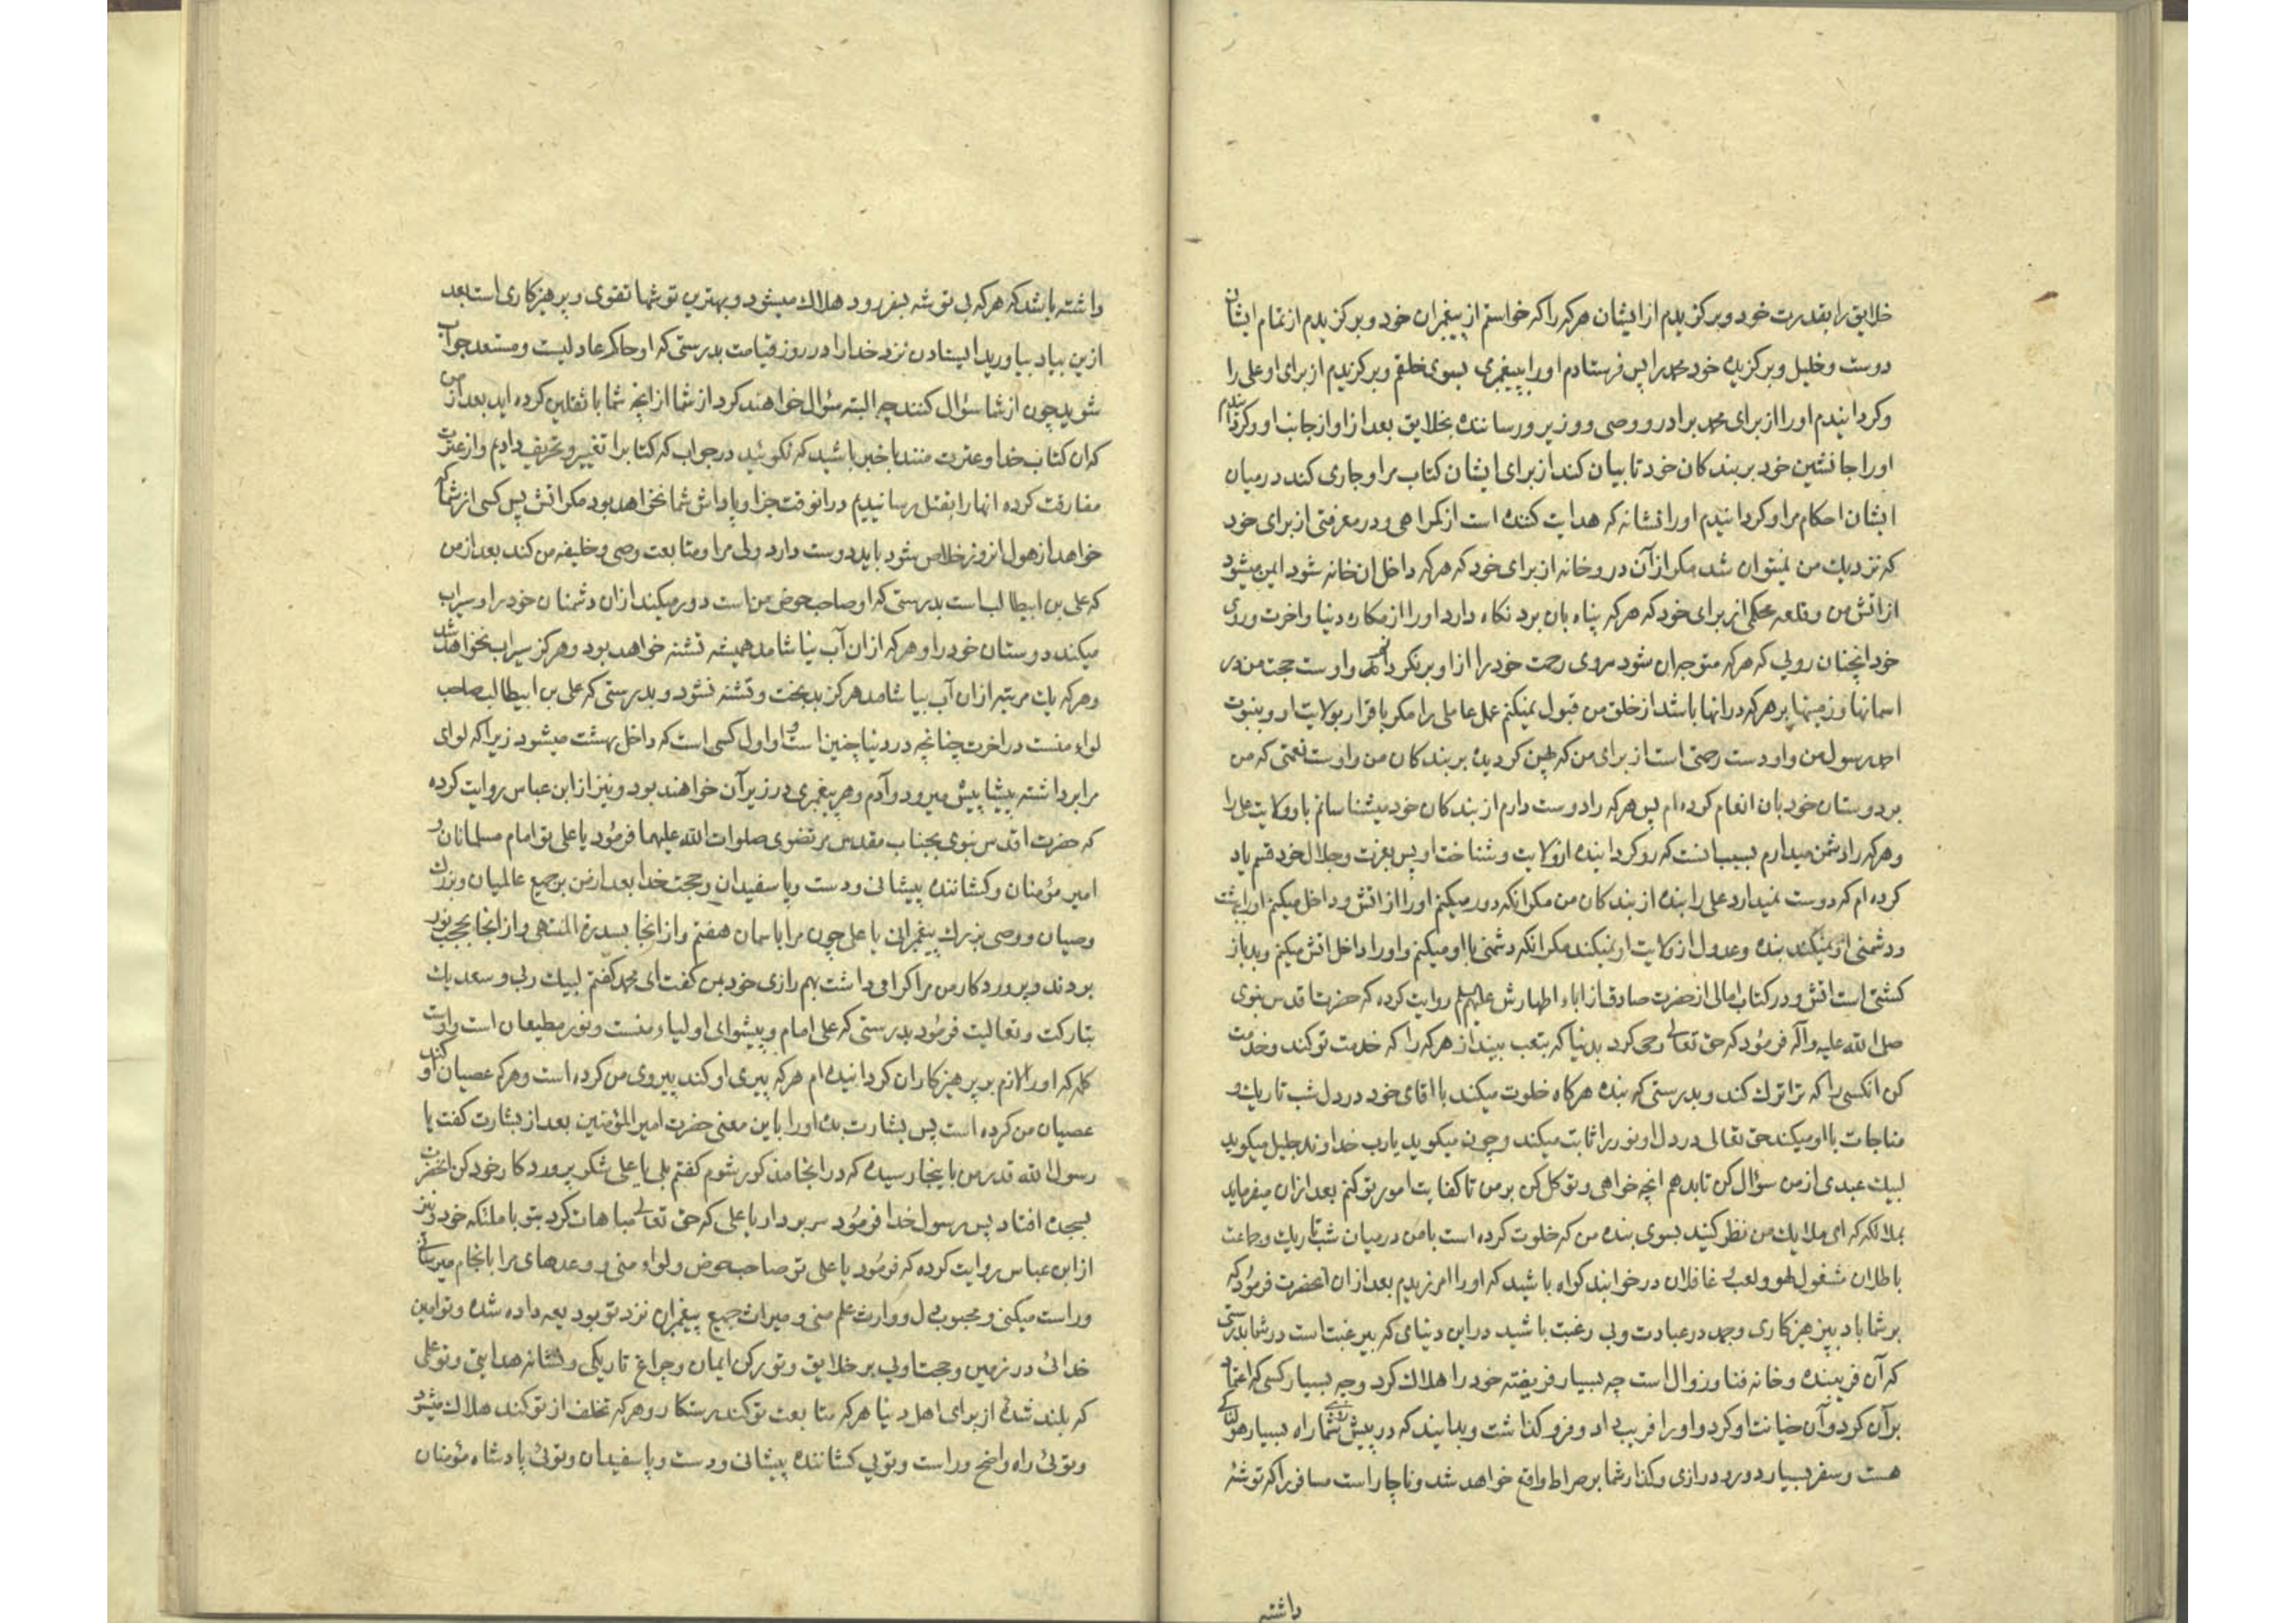 خلایق را بقدرت خود و برکزیدم از ایشان هرکه را که خواستم از پیغمبران خود و برکزیدم از تمام ایشان
دوست و خلیل و برکزیده خود محمد را پس فرستادم او را بپیغمبری بسوی خلقم و برکزیدم از برای او علی را
و کردانیدم او را از برای محمد برادر و وصی و وزیر و رساننده بخلایق بعد از او از جانب او و کردانیدم
او را جانشین خود بر بندکان خود تا بیان کند از برای ایشان کتاب مرا و جاری کند در میان
ایشان احکام مرا و کردانیدم او را نشانه که هدایت کننده است از کمراهی و در معرفتی از برای خود
که نزدیک من نمیتوان شد مکر از آن در و خانه از برای خود که هرکه داخل ان خانه شود ایمن میشود
از اتش من و قلعه محکمی از برای خود که هرکه پناه بان برد نکاه دارد او را از مکاره دنیا و اخرت و روی
خود انچنان رویی که هرکه متوجه ان شود روی رحمت خود را از او برنکردانم و اوست حجت من در
اسمانها و زمینها بر هرکه در انها باشد از خلق من قبول نمیکنم عمل عاملی را مکر باقرار بولایت او و بنبوت
احمد رسول من و اوست رحمتی است از برای من که پهن کردیده بر بندکان من و اوست نعمتی که من
بر دوستان خود بان انعام کرده ام پس هرکه را دوست دارم از بندکان خود میشناسانم باو ولایت علی را
و هرکه را دشمن میدارم بسبب انست که رو کردانیده از ولایت و شناخت او پس بعزت و جلال خود قسم یاد
کرده ام که دوست نمیدارد علی را بنده از بندکان من مکر انکه دور میکنم او را از اتش و داخل میکنم او را بهشت
و دشمنی او نمیکند بنده و عدول از ولایت او نمیکند مکر انکه دشمنی با او میکنم و او را داخل اتش میکنم و بد باز
کشتی است اتش و در کتاب امالی از حضرت صادق از اباء اطهارش علیهم روایت کرده که حضرت اقدس نبوی
صلی الله علیه و آله فرمود که حق تعالی وحی کرد بدنیا که بتعب بینداز هرکه را که خدمت تو کند و خدمت
کن انکسی را که ترا ترک کند و بدرستی که بنده هرکاه خلوت میکند با اقای خود در دل شب تاریک و
مناجات با او میکند حق تعالی در دل او نور را ثابت میکند و چون میکوید یا رب خداوند جلیل میکوید
لبیک عبدی از من سؤال کن تا بدهم انچه خواهی و توکل کن بر من تا کفایت امور تو کنم بعد از ان میفرماید
بملائکه که ای ملایک من نظر کنید بسوی بنده من که خلوت کرده است با من در میان شب تاریک و جماعت
باطلان مشغول لهو و لعب غافلان در خوابند کواه باشید که او را امرزیدم بعد از ان انحضرت فرمود که
بر شما باد بپرهیزکاری و جهد در عبادت و بی رغبت باشید در این دنیای که بیرغبت است در شما بدرستی
که آن فریبنده و خانه فنا و زوال است چه بسیار فریفته خود را هلاک کرد و چه بسیار کسی که اعتماد
بر آن کرد و آن خیانت او کرد و او را فریب داد و فرو کذاشت و بدانید که در پیش شما راه بسیار هولناکی
هست و سفر بسیار دور و درازی و کذار شما بر صراط واقع خواهد شد و ناچار است مسافر را که توشهٔ
داشته
داشته باشد که هرکه بی توشه بسفر رود هلاک میشود و بهترین توشها تقوی و پرهیزکاری است بعد
از این بیاد بیاورید ایستادن نزد خدا را در روز قیامت بدرستی که او حاکم عادلیست و مستعد جواب
شوید چون از شما سؤال کنند چه البته سؤال خواهند کرد از شما از انچه شما با ثقلین کرده اید بعد از من
که ان کتاب خدا و عترت منند با خبر باشید که نکوئید در جواب که کتاب را تغییر و تحریف دادیم و از عترت
مفارقت کرده انها را بقتل رسانیدیم در انوقت جزا و پاداش شما نخواهد بود مکر اتش پس کسی از شما که
خواهد از هول انروز خلاص شود باید دوست دارد ولی مرا و متابعت وصی و خلیفه من کند بعد از من
که علی بن ابیطالب است بدرستی که او صاحب حوض من است دور میکند از ان دشمنان خود را و سیراب
میکند دوستان خود را و هرکه از ان آب نیاشامد همیشه تشنه خواهد بود و هرکز سیراب نخواهد شد
و هرکه یک مرتبه از ان آب بیاشامد هرکز بدبخت و تشنه نشود و بدرستی که علی بن ابیطالب صاحب
لواء منست در اخرت چنانچه در دنیا چنین است و او اول کسی است که داخل بهشت میشود زیرا که لوای
مرا برداشته پیشاپیش میرود و آدم و هر پیغمبری در زیر آن خواهند بود و نیز از ابن عباس روایت کرده
که حضرت اقدس نبوی بجناب مقدس مرتضوی صلوات الله علیهما فرمود یا علی تو امام مسلمانان و
امیر مؤمنان و کشاننده پیشانی و دست و پا سفیدان و حجت خدا بعد از من بر جمیع عالمیان و بزرک
وصیان و وصی بزرک پیغمبرانی یا علی چون مرا باسمان هفتم و از انجا بسدرة المنتهی و از انجا بحجب نور
بردند و پروردکار من مرا کرامی داشت بهم رازی خود بمن کفت ای محمد کفتم لبیک ربی و سعدیک
تبارکت و تعالیت فرمود بدرستی که علی امام و پیشوای اولیاء منست و نور مطیعان است و اوست
کلمه که او را لازم بر پرهیزکاران کردانیده ام هرکه پیروی او کند پیروی من کرده است و هرکه عصیان او کند
عصیان من کرده است پس بشارت بده او را باین معنی حضرت امیر المؤمنین بعد از بشارت کفت یا
رسول الله قدر من باینجا رسیده که در انجا مذکور شوم کفتم بلی یا علی شکر پروردکار خود کن انحضرت
بسجده افتاد پس رسول خدا فرمود سر بردار یا علی که حق تعالی مباهات کرد بتو با ملئکه خود و نیز
از ابن عباس روایت کرده که فرمود یا علی تو صاحب حوض و لواء منی و وعدهای مرا بانجام میرسانی
و راست میکنی و محبوب دل و وارث علم منی و میراث جمیع پیغمبران نزد تو بودیعه داده شده و تو امین
خدائی در زمین و حجت اویی بر خلایق و تو رکن ایمان و چراغ تاریکی و نشانه هدایتی و تو علمی
که بلند شدهٔ از برای اهل دنیا هرکه متابعت تو کند رستکار و هرکه تخلف از تو کند هلاک میشود
و توئی راه واضح و راست و تویی کشاننده پیشانی و دست و پا سفیدان و توئی پادشاه مؤمنان